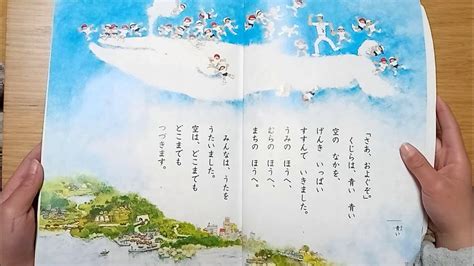 「さあ、およぐぞ。」
くじらは、青い 青い
空の なかを、
げんき いっぱい
すすんで いきました。
うみの ほうへ、
むらの ほうへ、
まちの ほうへ。
みんなは、うたを
うたいました。
空は、どこまでも
どこまでも
つづきます。
青い